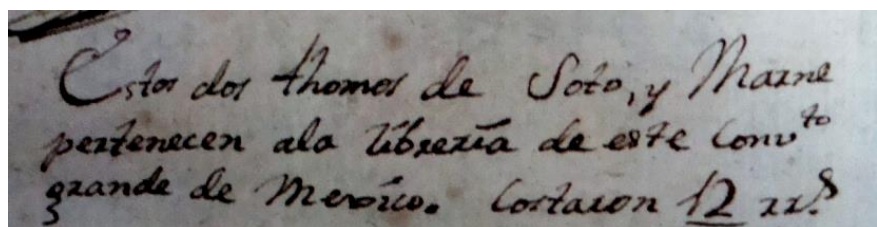 Estos dos thomos de Soto, y Marne
pertenecen ala libreria de este Convto
grande de Mexico. Costaron 12 rrs.